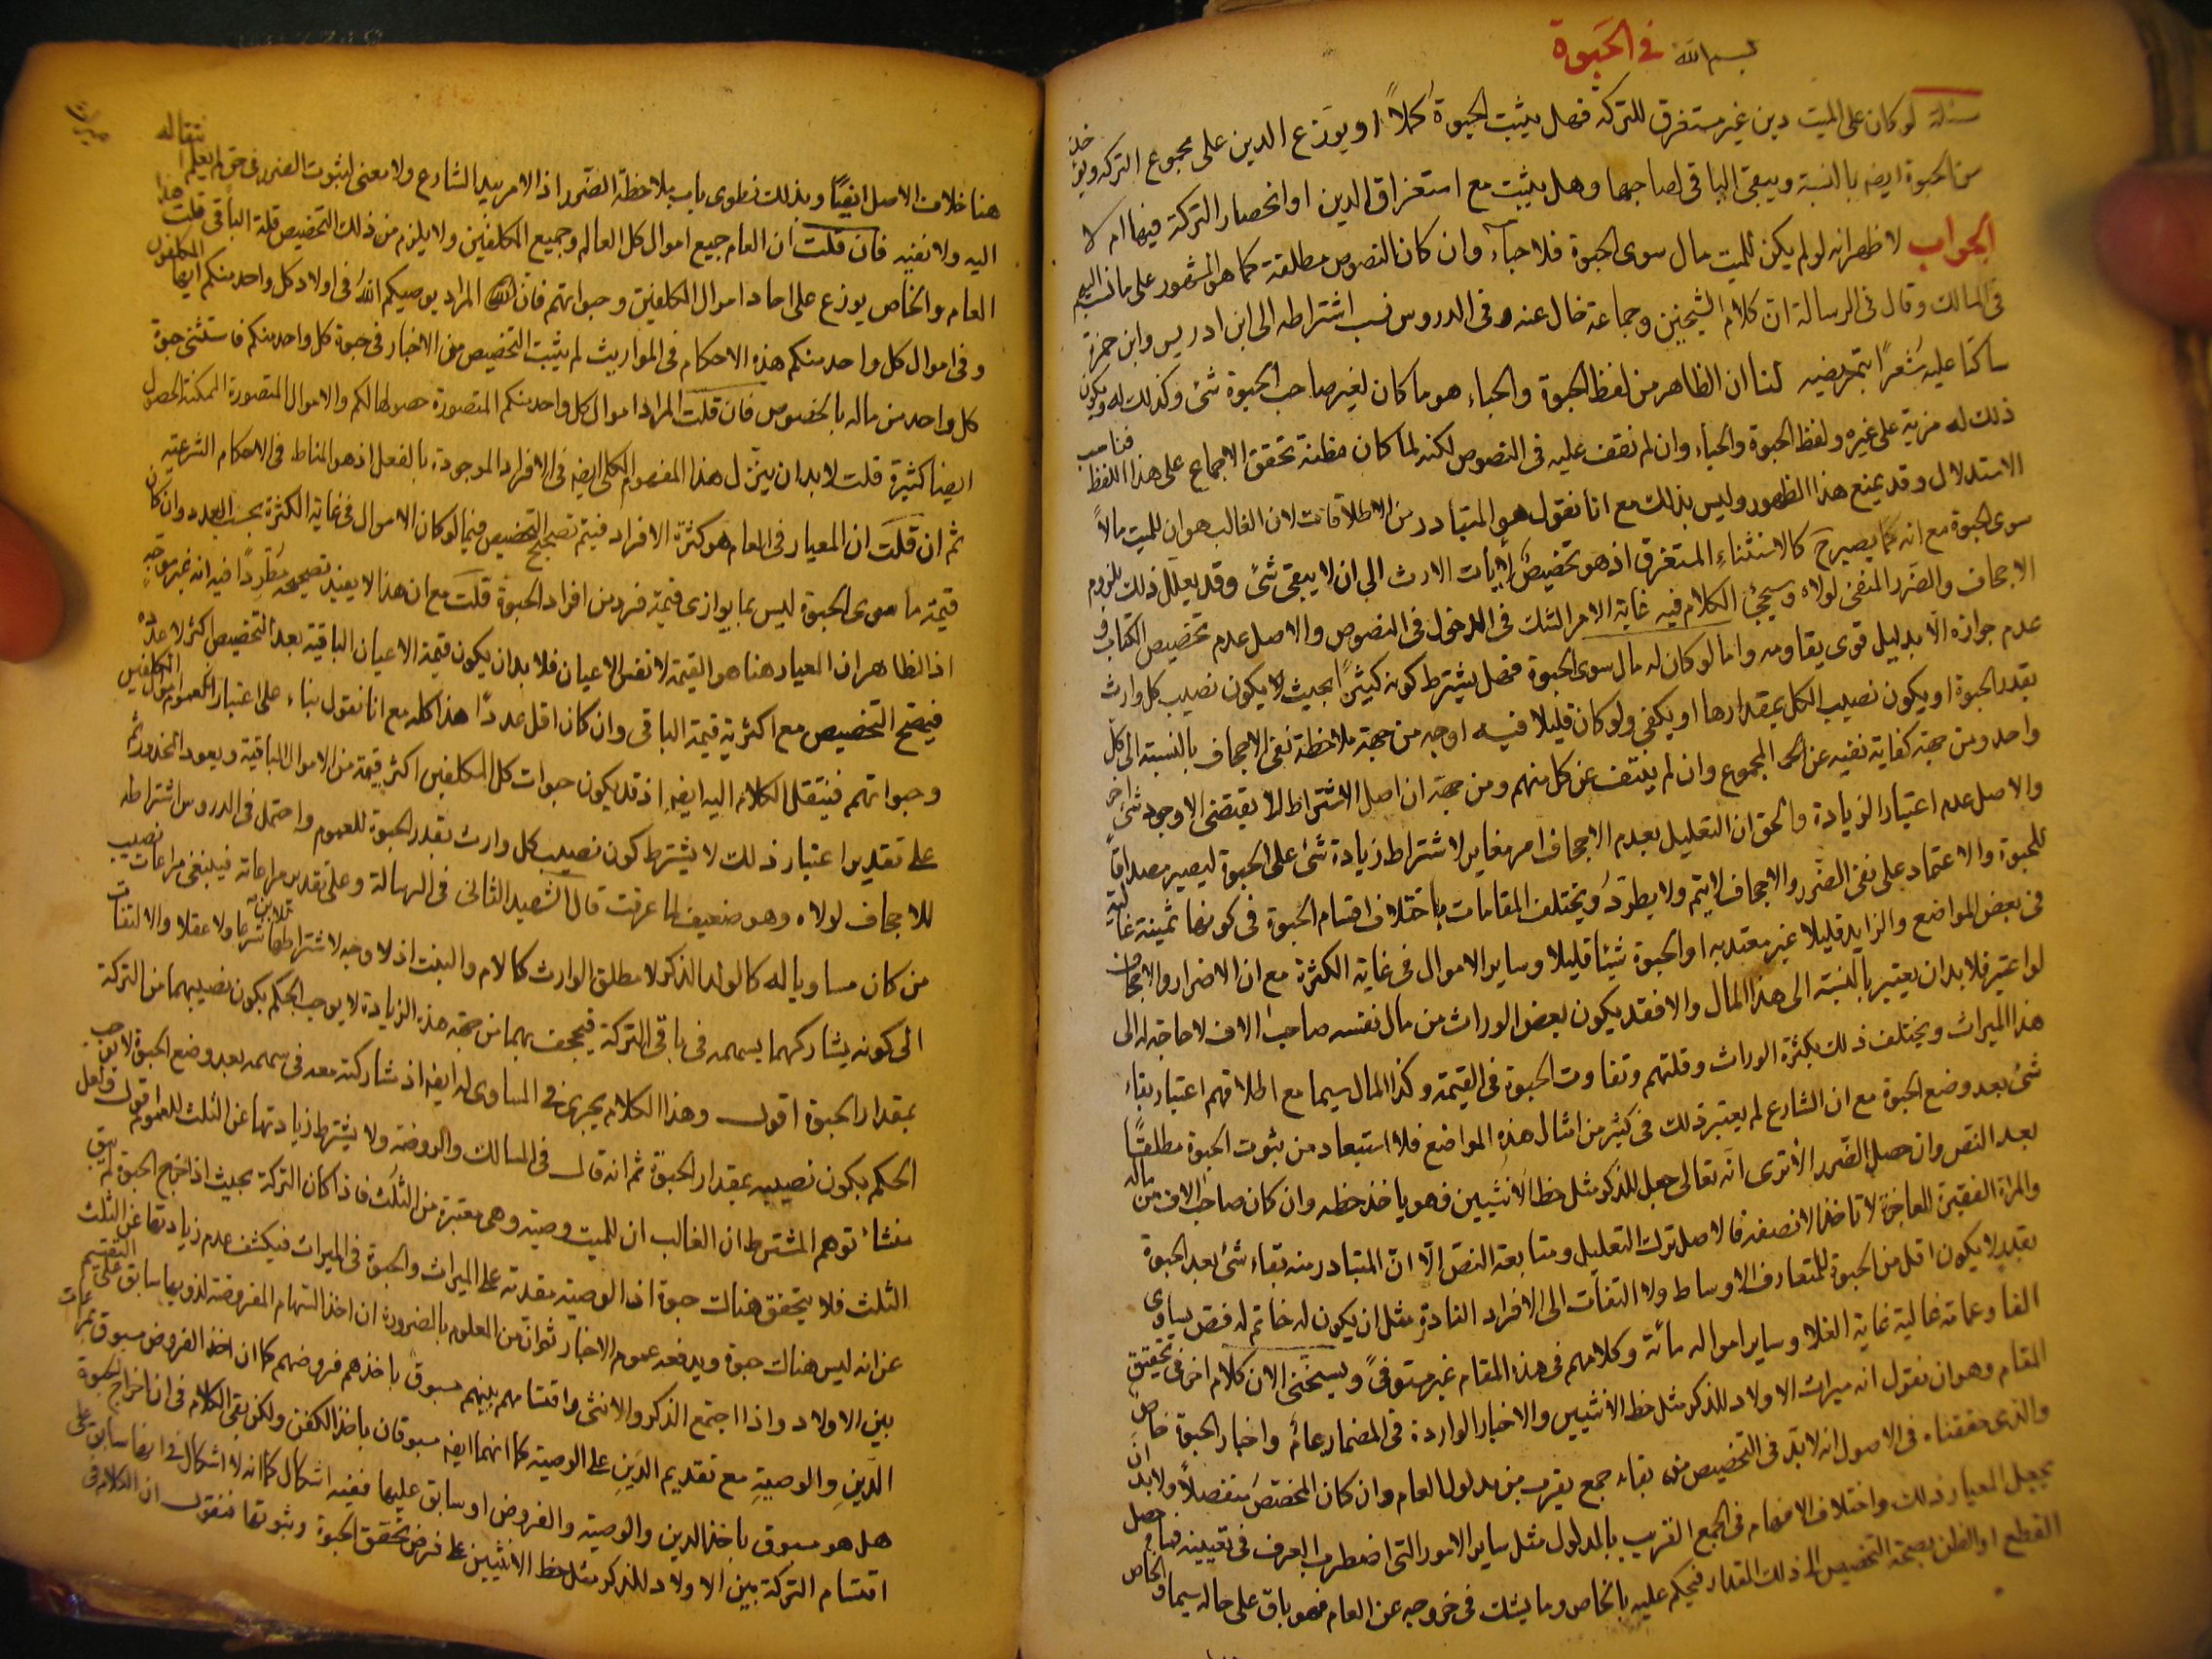 بسم الله في الحبوة
مسئلة لو كان على الميت دين غير مستغرق للتركة فهل يثبت الحبوة كملاً او يوزع الدين على مجموع التركة ويؤخذ
من الحبوة ايضا بالنسبة ويبقى الباقي لصاحبها وهل يثبت مع استغراق الدين او انحصار التركة فيها ام لا
الجواب لا ظهر انه لو لم يكن للميت مال سوى الحبوة فلا حباء وان كان النصوص مطلقة كما هو المشهور على ما نسب اليهم
في المسالك وقال في الرسالة ان كلام الشيخين وجماعة خال عنه وفي الدروس نسب اشتراطه الى ابن ادريس وابن حمزة
ساكتا عليه مشعرا بتمريضه لنا ان الظاهر من لفظ الحبوة والحباء هو ما كان لغير صاحب الحبوة شئ وكذلك له ويكون
ذلك له مزية على غيره ولفظ الحبوة والحباء وان لم نقف عليه في النصوص لكنه لما كان مظنة تحقق الاجماع على هذا اللفظ فناسب
الاستدلال وقد يمنع هذا الظهور وليس بذلك مع انا نقول هو المتبادر من الاطلاقات لان الغالب هو ان للميت مالاً
سوى الحبوة مع انه يصير ح كالاستثناء المستغرق اذ هو تخصيص لآيات الارث الى ان لا يبقى شئ وقد يعلل ذلك بلزوم
الاجحاف والضرر المنفى لولاه وسيجئ الكلام فيه غاية الامر الشك في الدخول في النصوص والاصل عدم تخصيص الكتاب و
عدم جوازه الا بدليل قوى يقاومه واما لو كان له مال سوى الحبوة فهل يشترط كونه كثيرا بحيث لا يكون نصيب كل وارث
بقدر الحبوة او يكون نصيب الكل بمقدارها او يكفى ولو كان قليلا فيه اوجه من جهة ملاحظة نفى الاجحاف بالنسبة الى كل
واحد ومن جهة كفاية نفيه عن المجموع وان لم ينتف عن كل منهم ومن جهة ان اصل الاشتراط لا يقتضى الا وجود شئ اخر
والاصل عدم اعتبار الزيادة والحق ان التعليل بعدم الاجحاف امر مغاير لاشتراط زيادة شئ على الحبوة ليصير مصداقاً
للحبوة والاعتماد على نفى الضرر والاجحاف لا يتم ولا يطرد ويختلف المقامات باختلاف اقسام الحبوة في كونها ثمينة غاية
في بعض المواضع والزايد قليلا غير معتد به او الحبوة شيئا قليلا وساير الاموال في غاية الكثرة مع ان الاضرار والاجحاف
لو اعتبر فلا بد ان يعتبر بالنسبة الى هذا المال والا فقد يكون بعض الوراث من مال نفسه صاحب الاف لا حاجة له الى
هذا الميراث ويختلف ذلك بكثرة الوراث وقلتهم وتفاوت الحبوة في القيمة وكذا المال سيما مع اطلاقهم اعتبار بقاء
شئ بعد وضع الحبوة مع ان الشارع لم يعتبر ذلك في كثير من امثال هذه المواضع فلا استبعاد من ثبوت الحبوة مطلقاً
بعد النص وان حصل الضرر الا ترى انه تعالى جعل للذكر مثل حظ الانثيين فهو ياخذ حظه وان كان صاحب الاف من ماله
والمراة الفقيرة العاجزة لا تاخذ الا نصفه فالاصل ترك التعليل ومتابعة النص الا ان المتبادر منه بقاء شئ بعد الحبوة
بقدر لا يكون اقل من الحبوة للمتعارف الاوساط ولا التفات الى الافراد النادرة مثل ان يكون له خاتم له فص يساوى
الفا وعمامة غالية غاية الغلا وساير امواله مأة وكلامهم في هذه المقام غير مستوفى ويسنحنى الان كلام اخر في تحقيق
المقام وهو ان نقول اية ميراث الاولاد للذكر مثل حظ الانثيين والاخبار الواردة في المضمار عام واخبار الحبوة خاص
والذى حققناه في الاصول انه لا بد في التخصيص من بقاء جمع يقرب من مدلول العام وان كان المخصص منفصلا ولا بد ان
يجعل المعيار ذلك واختلاف الافهام في الجمع القريب بالمدلول مثل ساير الامور التي اضطرب العرف في تعيينه فما حصل
القطع او الظن بصحة التخصيص الى ذلك المقدار فيحكم عليه بالخاص وما يشك في خروجه عن العام فهو باق على حاله سيما والخاص
هنا خلاف الاصل ايضا وبذلك نطوى باب ملاحظة الضرر اذ الامر بيد الشارع ولا معنى لثبوت الضرر في حق لم يعلم انتقاله
اليه ولا نفيه فان قلت ان العام جميع اموال كل العالم وجميع المكلفين ولا يلزم من ذلك التخصيص قلة الباقى قلت هذا
العام والخاص يوزع على احاد اموال المكلفين وحبواتهم فان المراد يوصيكم الله في اولاد كل واحد منكم ايها المكلفون
وفي اموال كل واحد منكم هذه الاحكام في المواريث لم يثبت التخصيص من الاخبار في حبوة كل واحد منكم فاستثنى حبوة
كل واحد من ماله بالخصوص فان قلت المراد اموال كل واحد منكم المتصورة حصولها لكم والاموال المتصورة الممكنة الحصول
ايضا كثيرة قلت لا بد ان ينزل هذا المفهوم الكلى ايضا في الافراد الموجودة بالفعل اذ هو المناط في الاحكام الشرعية
ثم ان قلت ان المعيار في العام هو كثرة الافراد فيتم تصحيح التخصيص فيما لو كان الاموال في غاية الكثرة بحسب العدد وان كان
قيمة ما سوى الحبوة ليس بما يوازى قيمة فرد من افراد الحبوة قلت مع ان هذا لا يفيد تصحيحه مطردا فيه انه غير موجه
اذ الظاهر ان المعيار هنا هو القيمة لا نفس الاعيان فلا بد ان يكون قيمة الاعيان الباقية بعد التخصيص اكثر لا عدده
فيصح التخصيص مع اكثرية قيمة الباقى وان كان اقل عددًا هذا كله مع انا نقول بناء على اعتبار العموم اموال المكلفين
وحبواتهم فينتقل الكلام اليه ايضا اذ قد يكون حبوات كل المكلفين اكثر قيمة من الاموال الباقية ويعود المحذور ثم
على تقدير اعتبار ذلك لا يشترط كون نصيب كل وارث بقدر الحبوة للعموم واحتمل في الدروس اشتراطه
للاجحاف لولاه وهو ضعيف لما عرفت قال الشهيد الثانى في الرسالة وعلى تقدير مراعاته فينبغى مراعات نصيب
من كان مساويا له كالولد الذكر لا مطلق الوارث كالام والبنت اذ لا وجه لاشتراطها شرعا ولا عقلا والالتفات
الى كونه يشاركهما بسهمه في باقى التركة فيجحف بهما من جهة هذه الزيادة لا يوجب الحكم بكون نصيبهما من التركة
بمقدار الحبوة اقول وهذا الكلام يجرى في المساوى له ايضا اذ مشاركته معه في سهمه بعد وضع الحبوة لا يوجب
الحكم بكون نصيبه بمقدار الحبوة ثم انه قال في المسالك والروضة ولا يشترط زيادتها عن الثلث للعموم اقول ولعل
منشأ توهم المشترط ان الغالب ان للميت وصية وهى معتبرة من الثلث فاذا كان التركة بحيث اذا خرج الحبوة لم يبق
الثلث فلا يتحقق هناك حبوة اذ الوصية مقدمة على الميراث والحبوة في الميراث فيكشف عدم زيادتها عن الثلث
عن انه ليس هناك حبوة ويدفعه عموم الاخبار ثم ان من المعلوم بالضرورة ان اخذ السهام المفروضة لذويها سابق على التقسيم
بين الاولاد واذا اجتمع الذكر والانثى واقتسامهم بينهم مسبوق باخذهم فروضهم كما ان اخذ الفروض مسبوق بمراعات
الدين والوصية مع تقديم الدين على الوصية كما انهما ايضا مسبوقان باخذ الكفن ولكن بقى الكلام في ان اخراج الحبوة
هل هو مسبوق باخذ الدين والوصية والفروض او سابق عليها ففيه اشكال كما انه لا اشكال في انها سابق على
اقتسام التركة بين الاولاد للذكر مثل حظ الانثيين على فرض تحقق الحبوة وثبوتها فنقول ان الكلام في